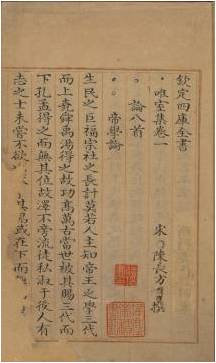 欽定四庫全書
唯室集卷一
宋 陳長方 撰
論八首
帝學論
生民之巨福宗社之長計莫若人主知帝王之學三代
而上堯舜禹湯得之故功髙萬古當世被其賜三代而
下孔孟得之而無其位故澤不旁流徒私淑于後人有
志之士未嘗不欲 其君或在下而